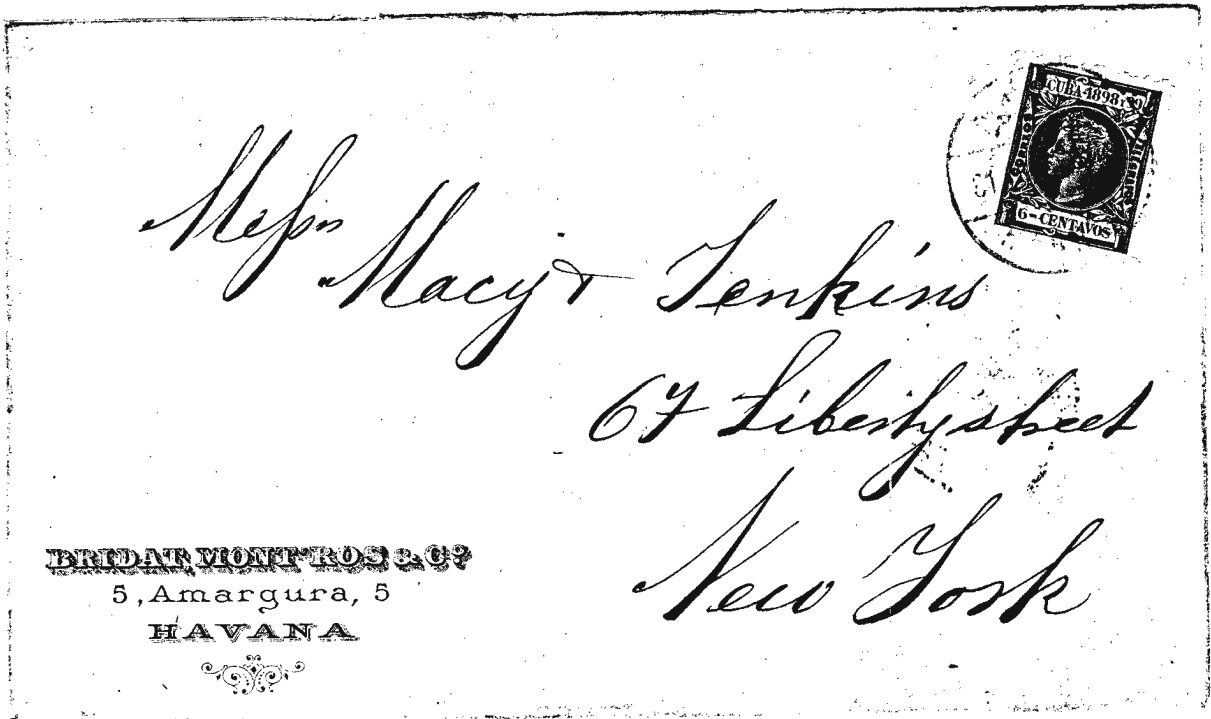 CUBA 1898 y 99
CORREOS
6 = CENTAVOS
Messrs
Macy & Jenkins
67 Liberty street
New York
BRIDAT, MONT'ROS & Cº
5, Amargura, 5
HAVANA